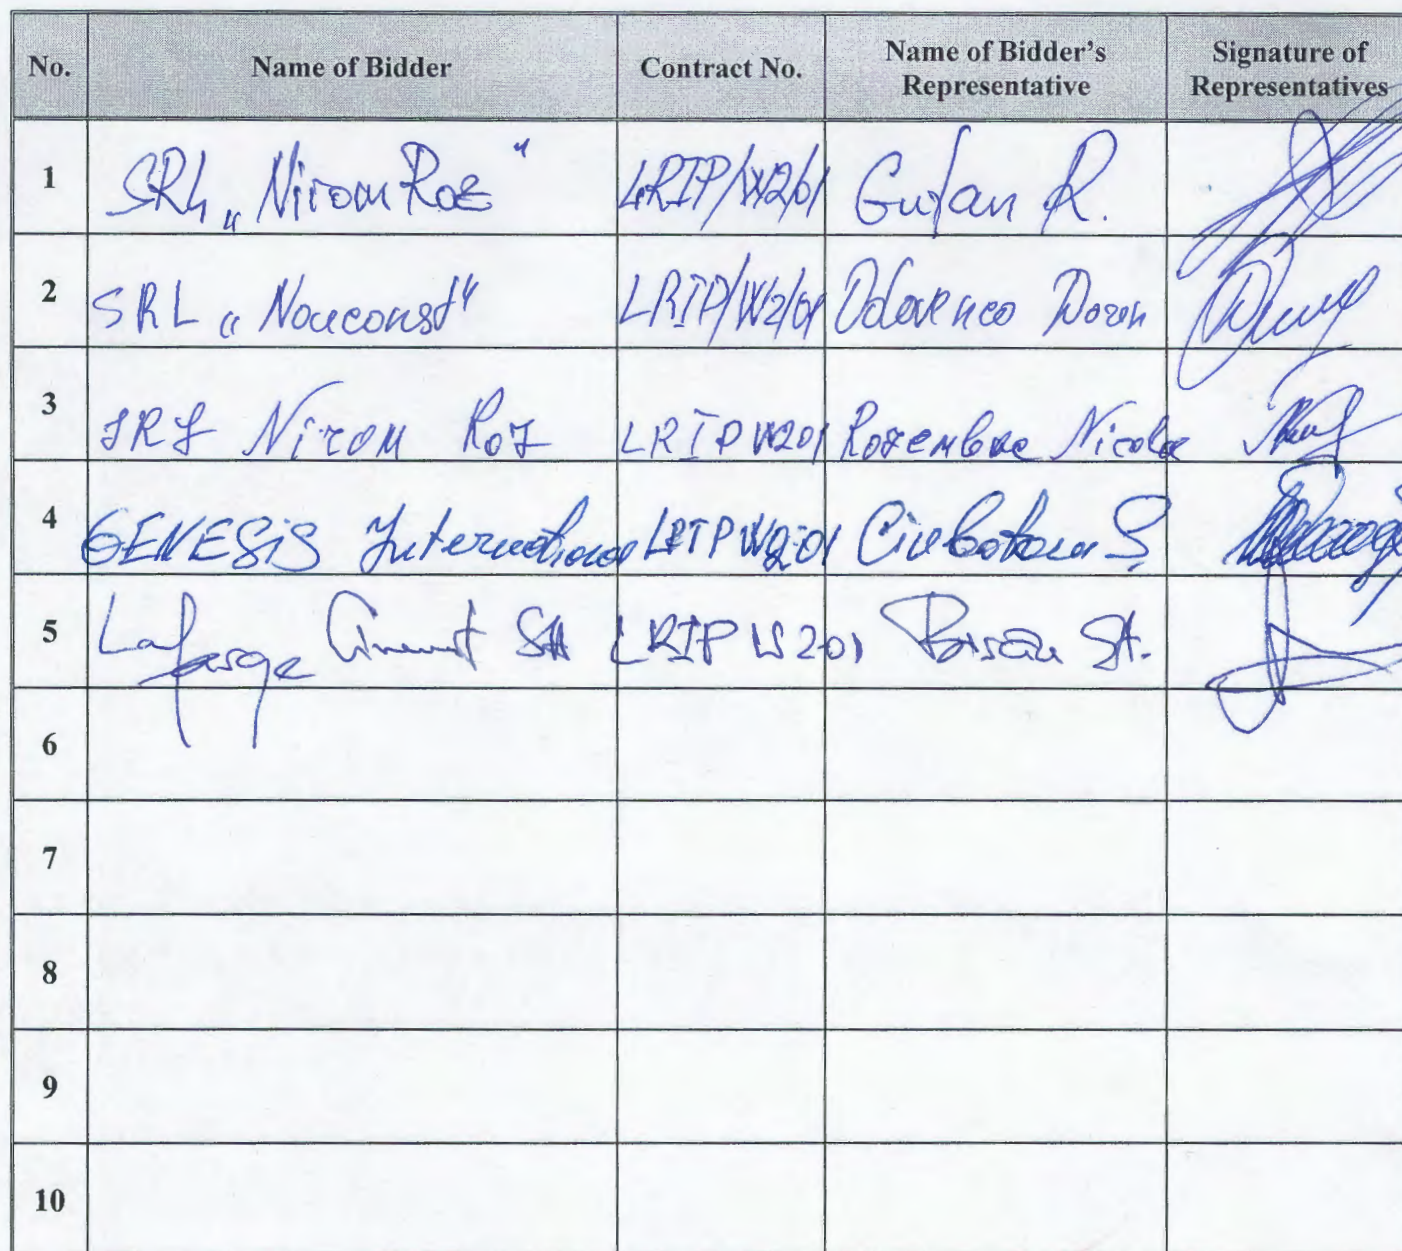 No. Name of Bidder Contract No. Name of Bidder's Representative Signature of Representatives
1 SRL „Nirom Roz" LRIP/W2/01 Guțan R.
2 SRL „Nouconst" LRIP/W2/01 Odovenco Doron
3 SRL Nirom Roz LRIP W201 Nicolae
4 GENESiS International LRIP W2-01 Ciubotaru S.
5 Lafarge Ciment SA LRIP W201 St.
6
7
8
9
10